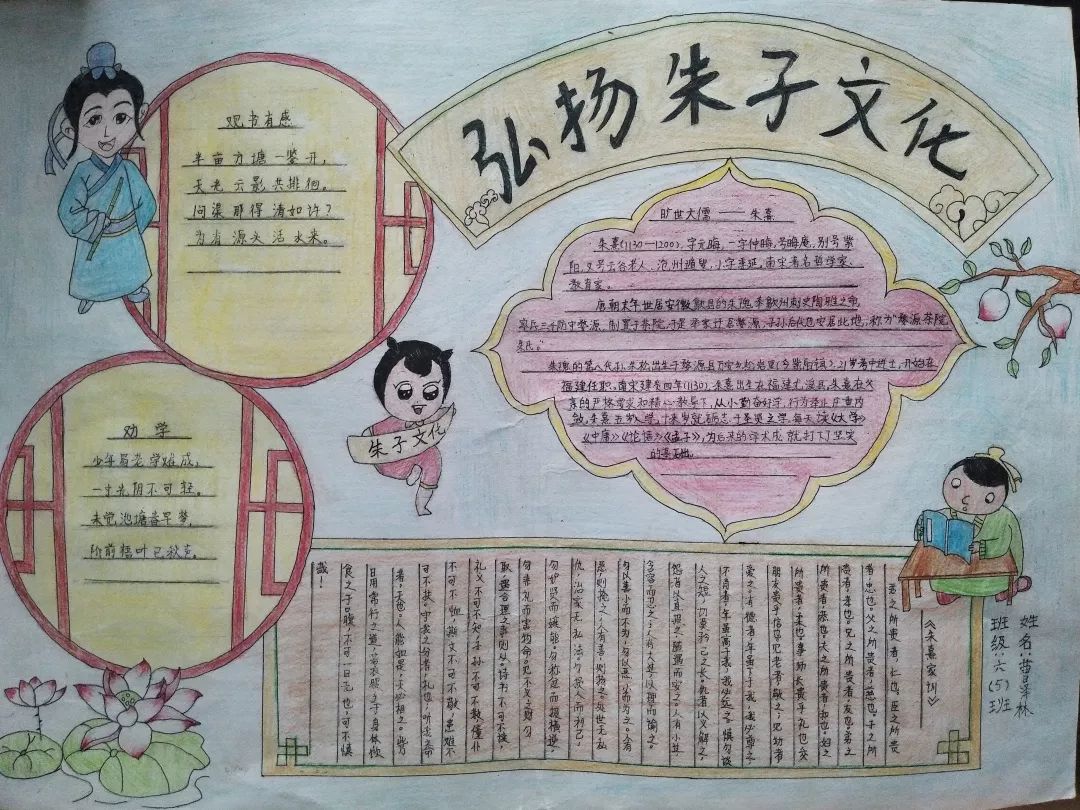 弘扬朱子文化
观书有感
半亩方塘一鉴开，
天光云影共排徊。
问渠那得清如许？
为有源头活水来。
旷世大儒——朱熹
朱熹(1130—1200)，字元晦，一字仲晦，号晦庵，别号紫
阳，又号云谷老人、沧州遁叟，小字季延，南宋著名哲学家、
教育家。
唐朝末年世居安徽歙县的朱瑰，奉歙州刺史陶雅之命，
领兵三千防守婺源，制置于茶院，于是举家迁居婺源，子孙后代也安居此地，称为“婺源茶院
朱氏。”
朱瑰的第八代孙朱松出生于婺源县万安乡松岩里(今紫阳镇)，21岁考中进士，开始在
福建任职。南宋建炎四年(1130)，朱熹出生在福建尤溪，朱熹在父
亲的严格要求和精心教导下，从小勤奋好学，行为举止庄重内
敛，朱熹五岁入学，十来岁就励志于圣贤之学，每天读《大学》
《中庸》《论语》《孟子》，为后来的学术成就打下了坚实
的基础。
朱子文化
劝学
少年易老学难成，
一寸光阴不可轻。
未觉池塘春草梦，
阶前梧叶已秋声。
姓名：曾泽林
班级：六(5)班
《朱熹家训》
君之所贵者，仁也。臣之所贵
者，忠也。父之所贵者，慈也。子之所
贵者，孝也。兄之所贵者，友也。弟之
所贵者，恭也。夫之所贵者，和也。妇之
所贵者，柔也。事师长贵乎礼也，交
朋友贵乎信也。见老者，敬之；见幼者，
爱之。有德者，年虽下于我，我必尊之；
不肖者，年虽高于我，我必远之。慎勿谈
人之短，切莫矜己之长。仇者以义解之，
怨者以直报之，随遇而安之。人有小过，
含容而忍之；人有大过，以理而谕之。
勿以善小而不为，勿以恶小而为之。人有
恶，则掩之；人有善，则扬之。处世无私
仇，治家无私法。勿损人而利己，
勿妒贤而嫉能。勿称忿而报横逆，
勿非礼而害物命。见不义之财勿
取，遇合理之事则从。诗书不可不读，
礼义不可不知。子孙不可不教，僮仆
不可不恤。斯文不可不敬，患难不
可不扶。守我之分者，礼也；听我之命
者，天也。人能如是，天必相之。此乃
日用常行之道，若衣服之于身体，饮
食之于口腹，不可一日无也，可不慎
哉！